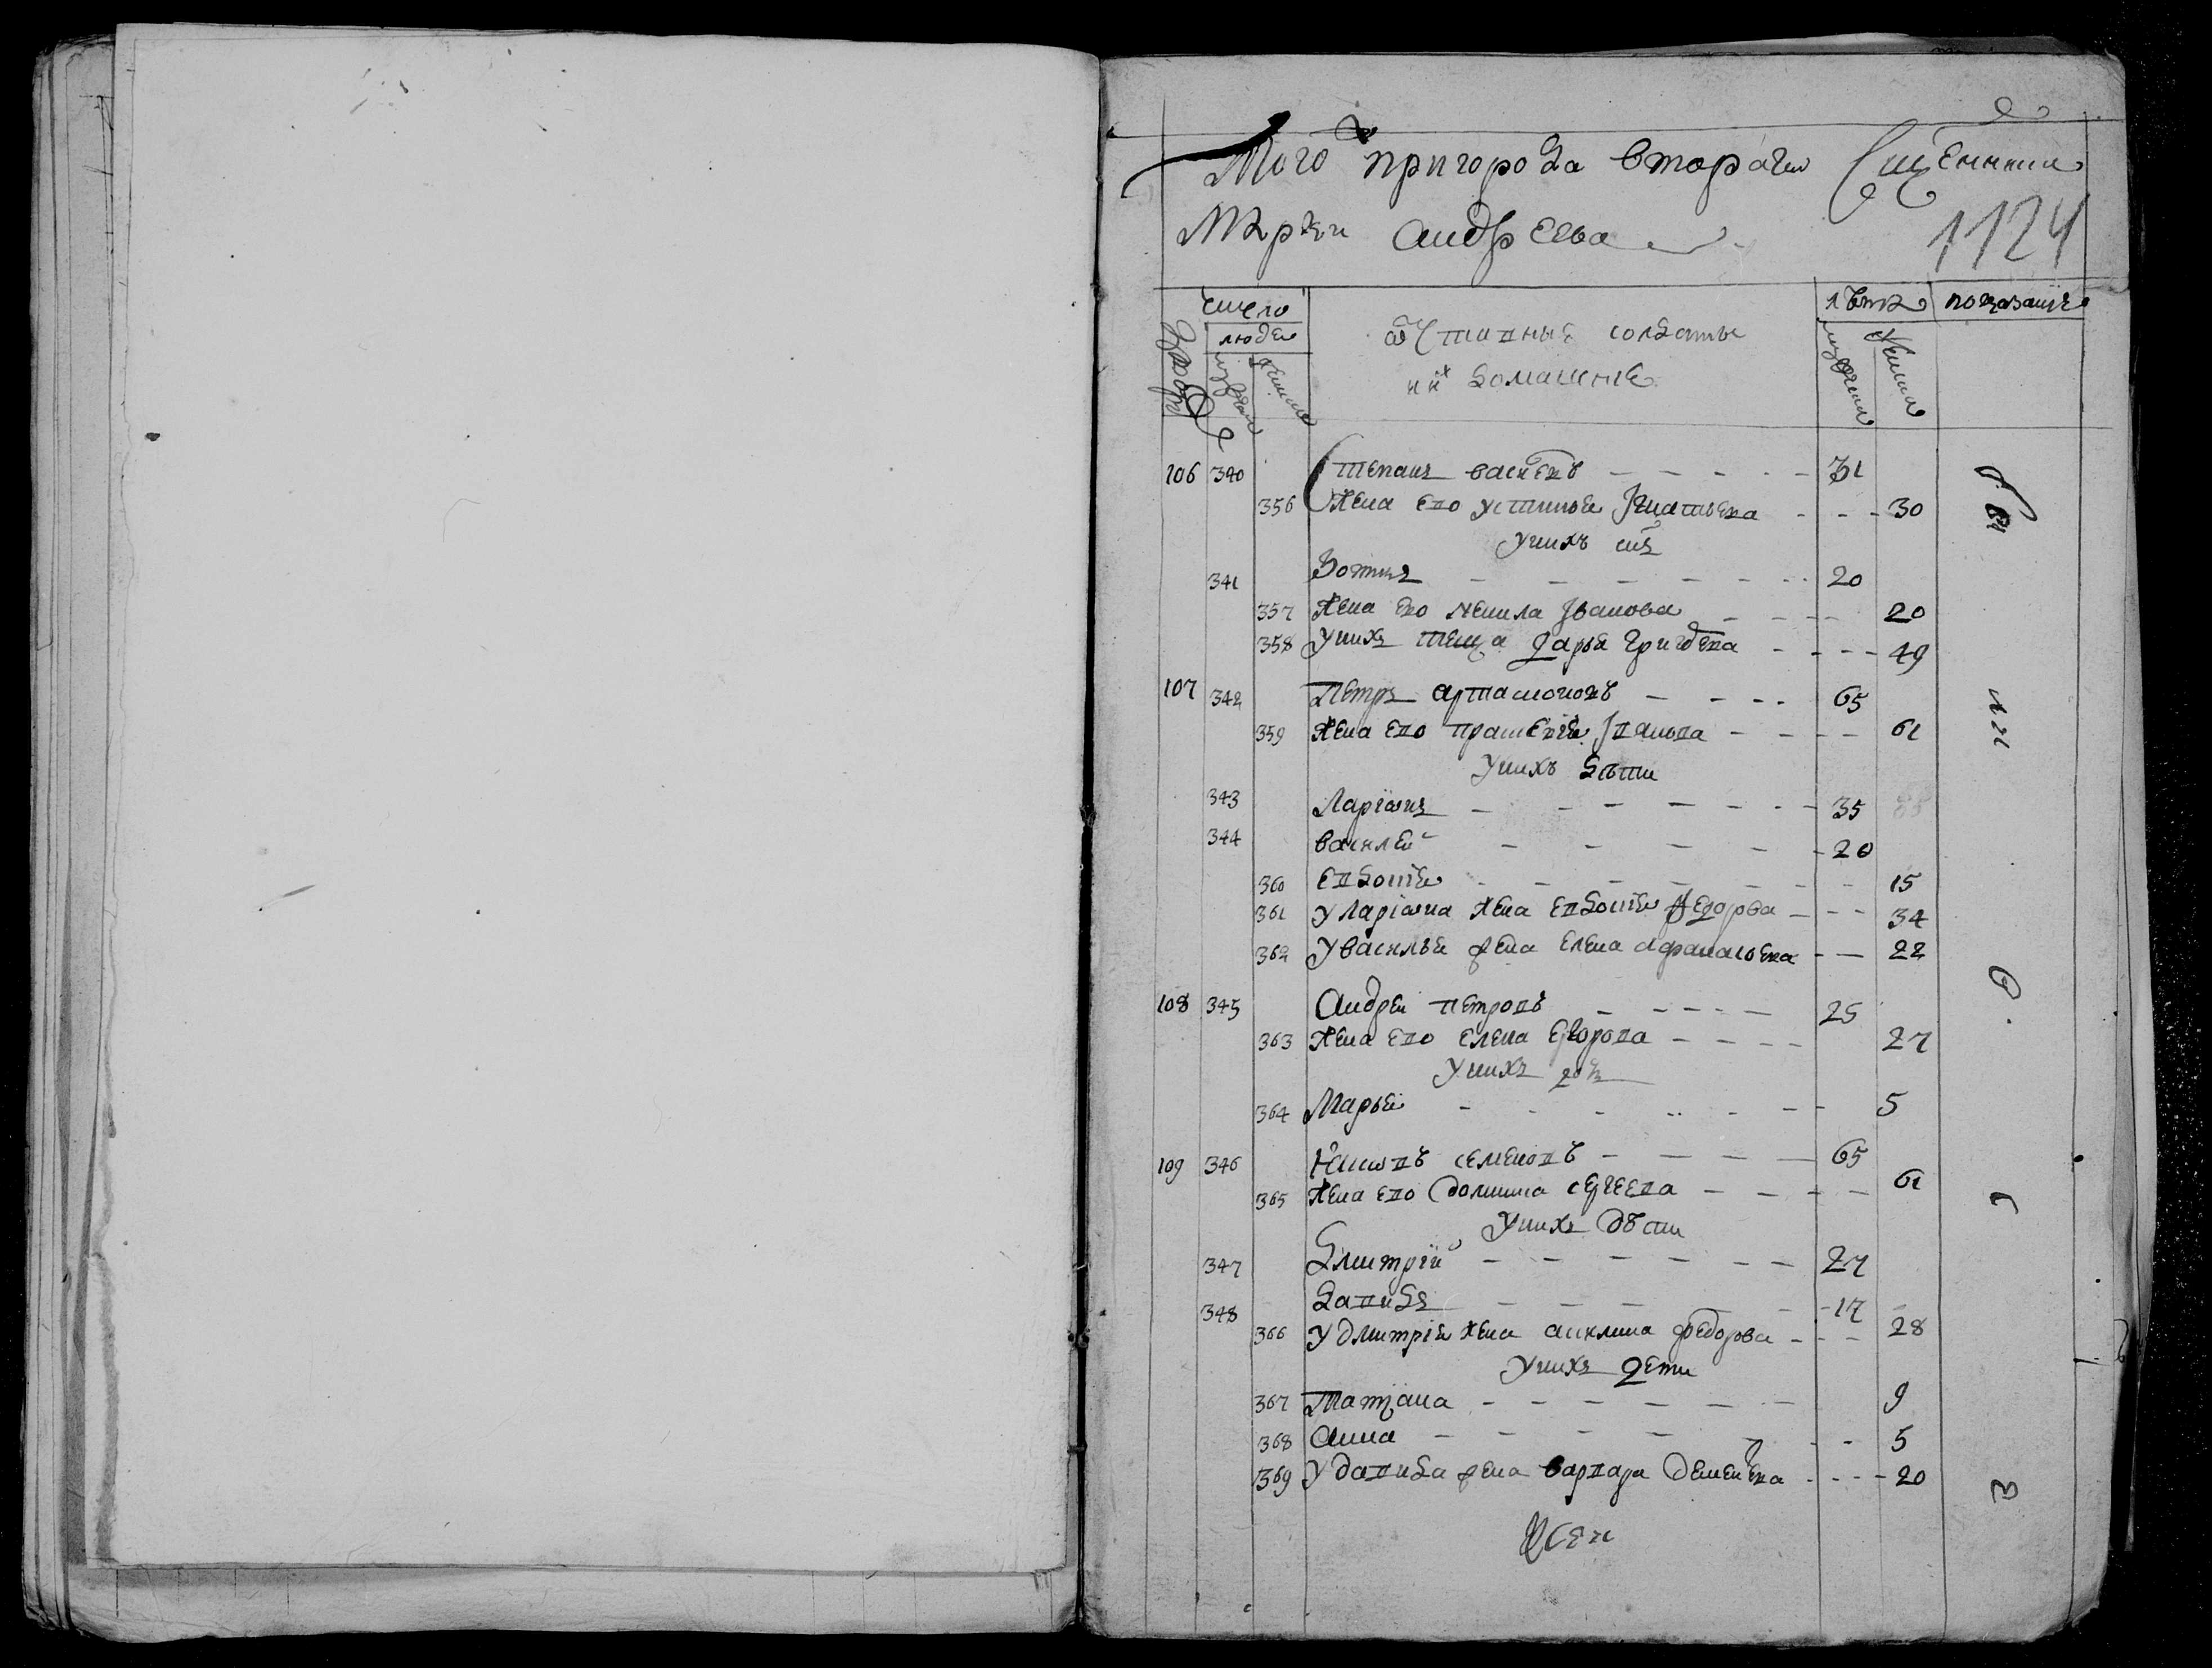 Того пригорода втораго Сщенника
Марки Андреева
1124
число
людей
лѣта
показание
дворовъ
мужска
женска
отставные солдаты
и их домашние
мужска
женска
106 340 Степанъ Васильевъ 31
356 Жена ево Устинья Игнатьева 30
у нихъ снъ
341 Зотикъ 20
357 Жена ево Ненила Иванова 20
358 у нихъ теща Дарья Григорьева 49
107 342 Петръ Артамоновъ 65
359 Жена ево Прасковья Иванова 61
у нихъ дѣти
343 Ларионъ 35
344 Василей 20
360 Евдокия 15
361 у Лариона жена Евдокия Федорова 34
362 у Василья жена Елена Афанасьева 22
108 345 Андрей Петровъ 25
363 Жена ево Елена Егорова 27
у нихъ дочь
364 Марья 5
109 346 Семеновъ 65
365 Жена ево Домника Сергеева 61
у нихъ дѣти
347 Дмитрий 27
348 Давидъ 17
366 у Дмитрия жена Акилина Федорова 28
у нихъ дети
367 Татиана 9
368 Анна 5
369 у Давида жена Варвара Дементьева 20